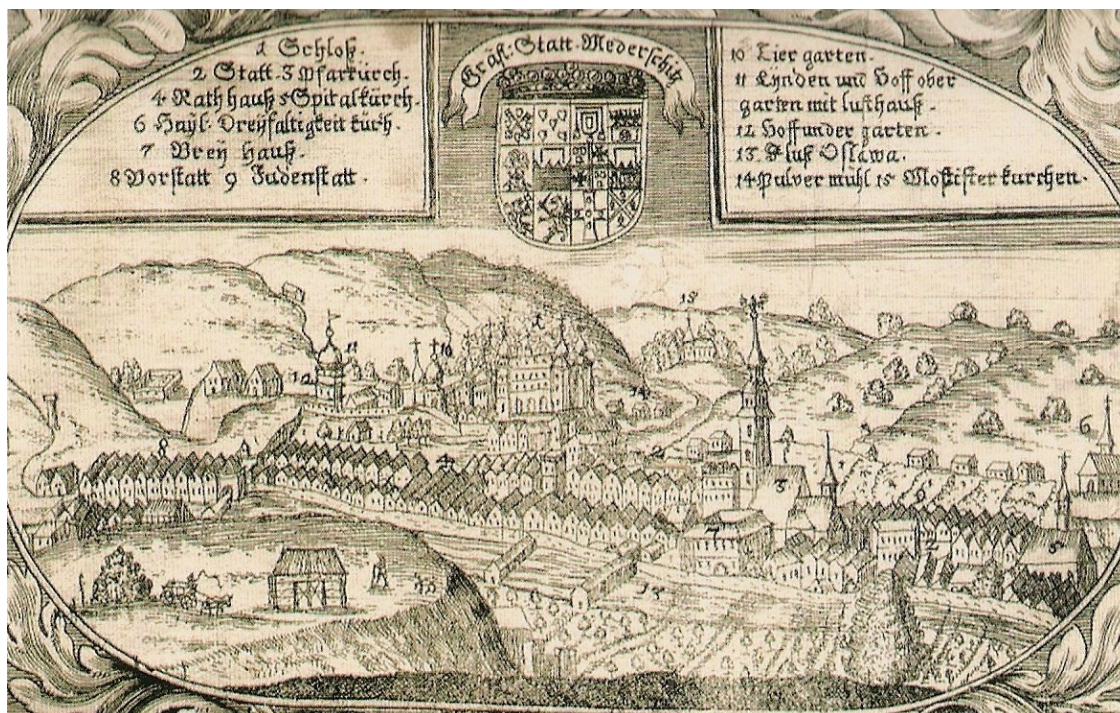 1 Schloß.
2 Statt. 3 Pfarkürch.
4 Rathhauß 5 Spitalkürch.
6 Hayl. Dreyfaltigkeit kürch.
7 Breÿ hauß.
8 Vorstatt 9 Judenstatt.
Gräfl: Statt Mederschitz
10 Tier garten.
11 Lynden und Hoff ober
garten mit lusthauß.
12 Hoff under garten.
13 Fluß Oslawa.
14 Pulver muhl 15 Mostister kurchen.
1
11
10
15
12
14
8
4
2
3
9
6
7
2
5
13